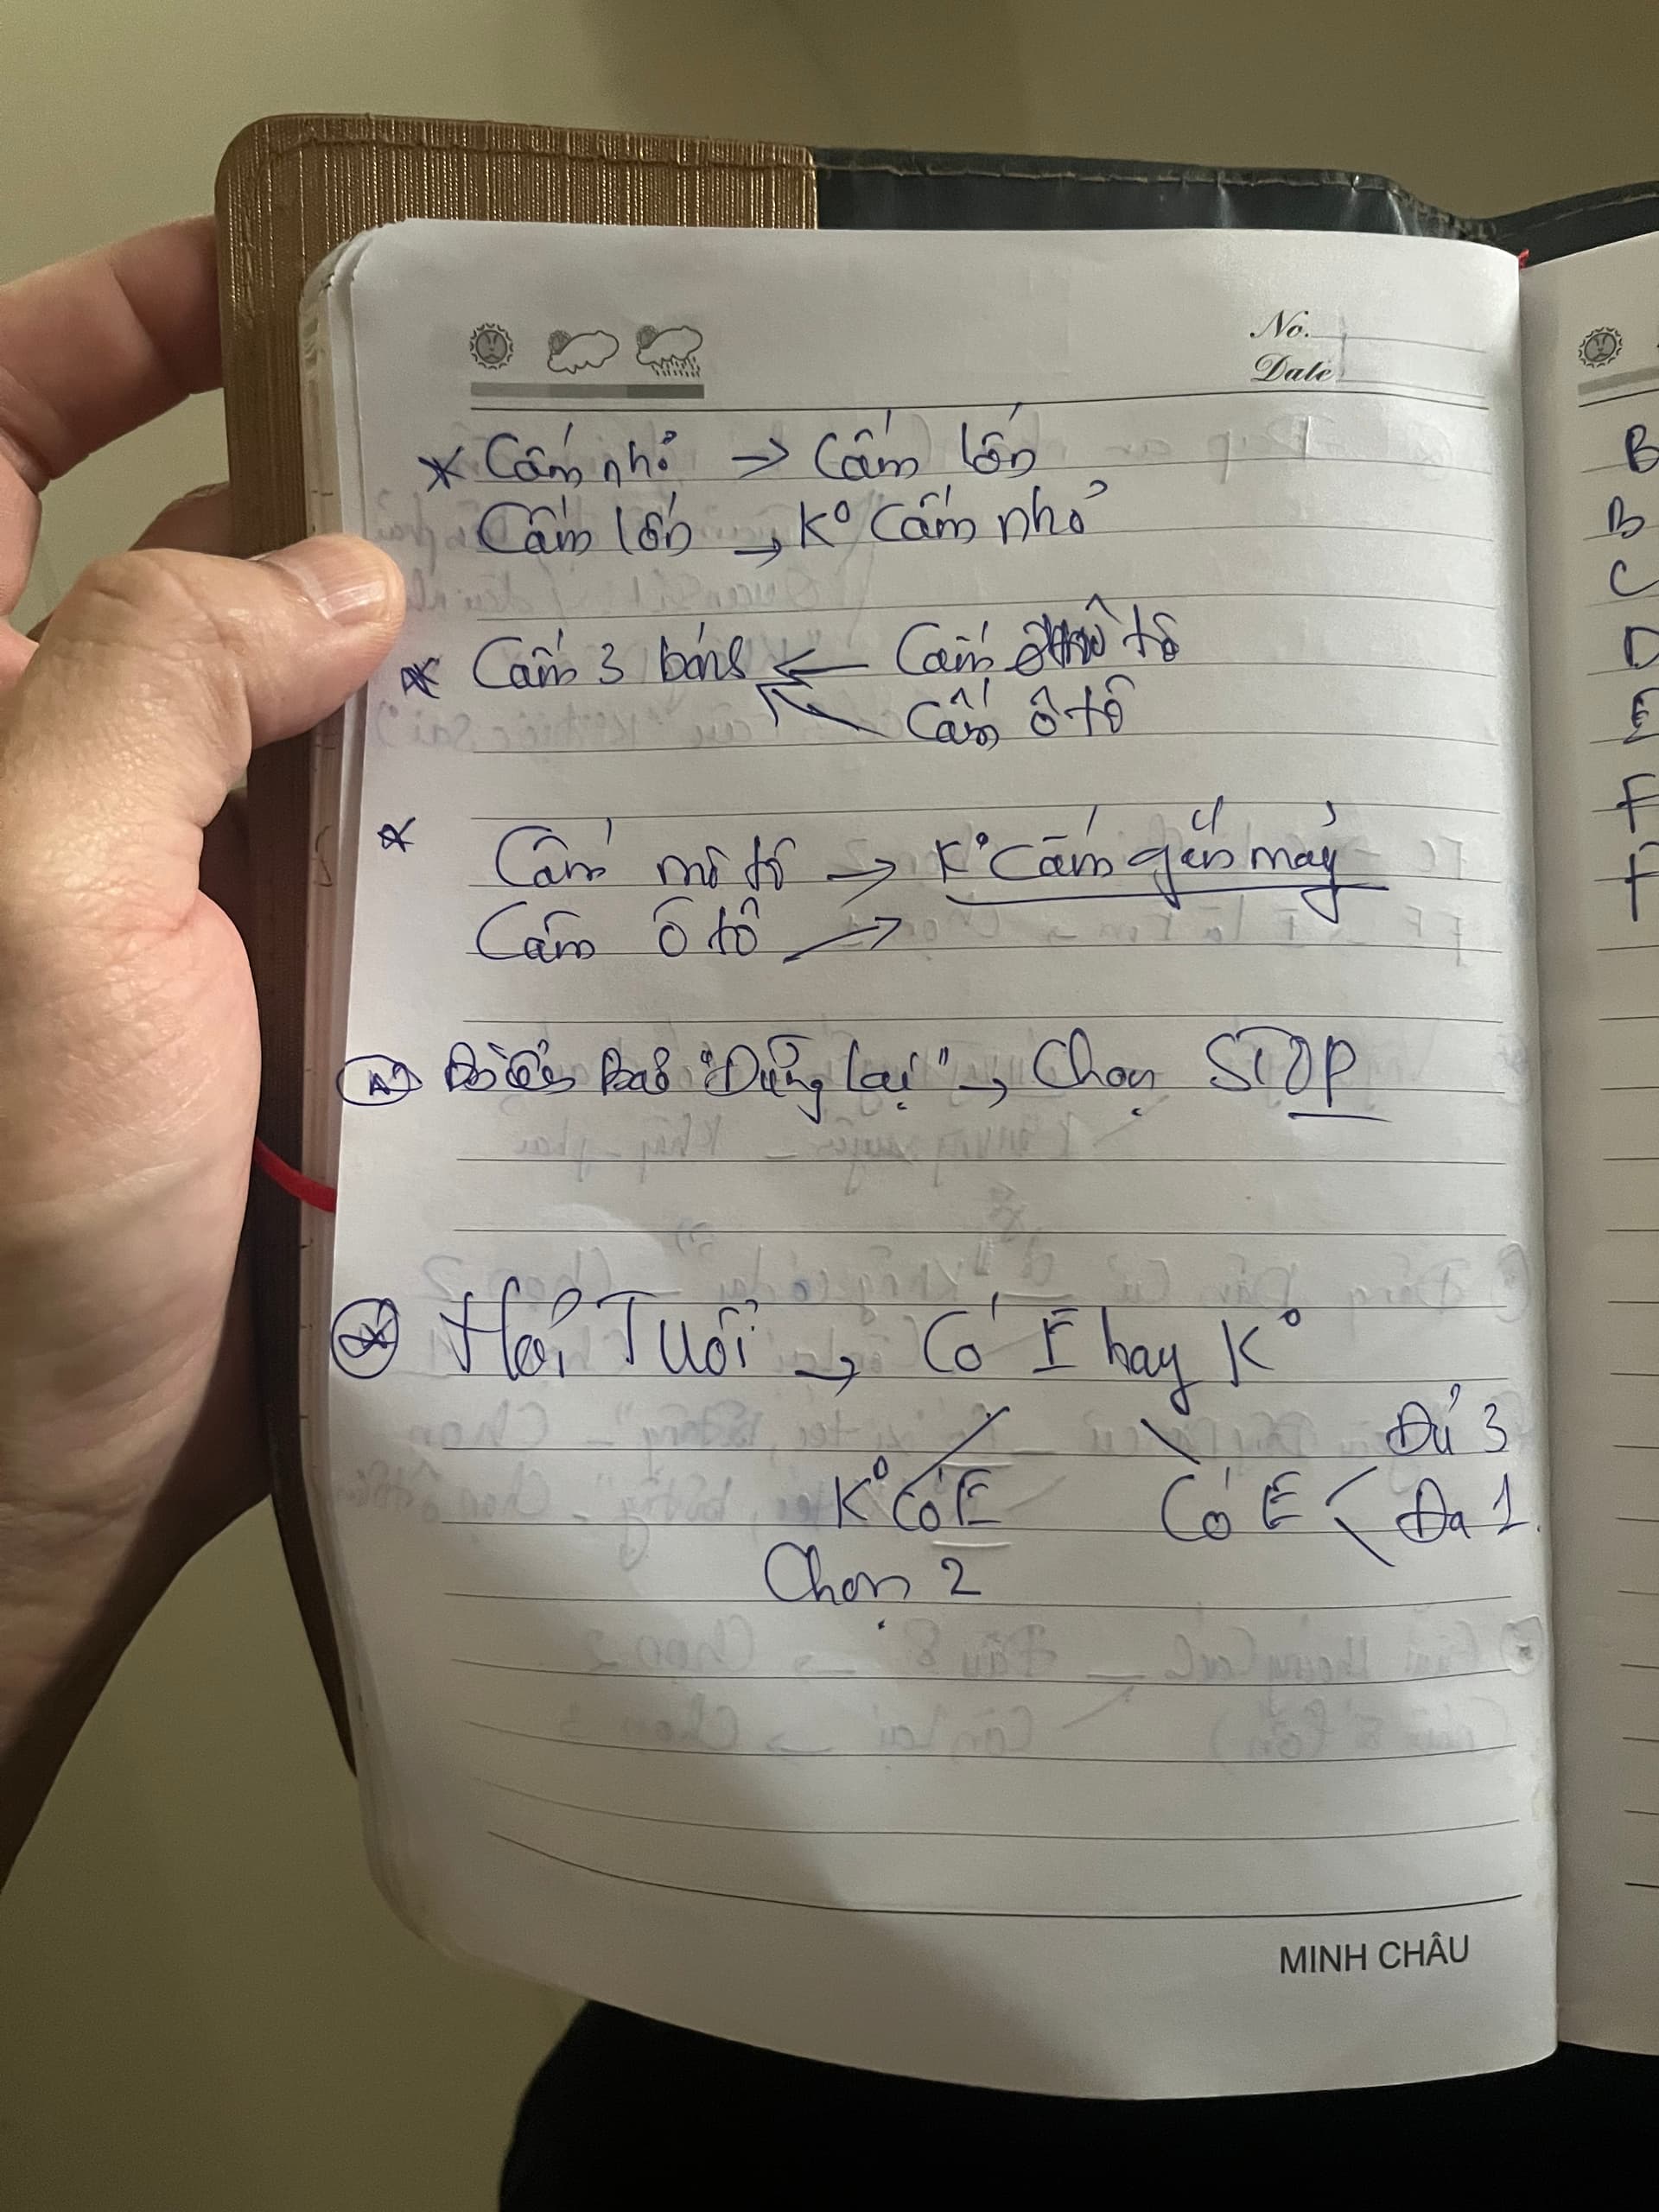 No.
Date
* Cấm nhỏ → Cấm lớn
Cấm lớn → K° Cấm nhỏ
* Cấm 3 bánh ← Cấm mô tô
Cấm ô tô
* Cấm mô tô → K° Cấm gắn máy
Cấm ô tô →
Biển Báo "Dừng lại" → Chọn STOP
Hỏi Tuổi → Có E hay K°
Đủ 3
K° Có E Có E < Đa 1
Chọn 2
MINH CHÂU
B
B
C
D
E
F
F